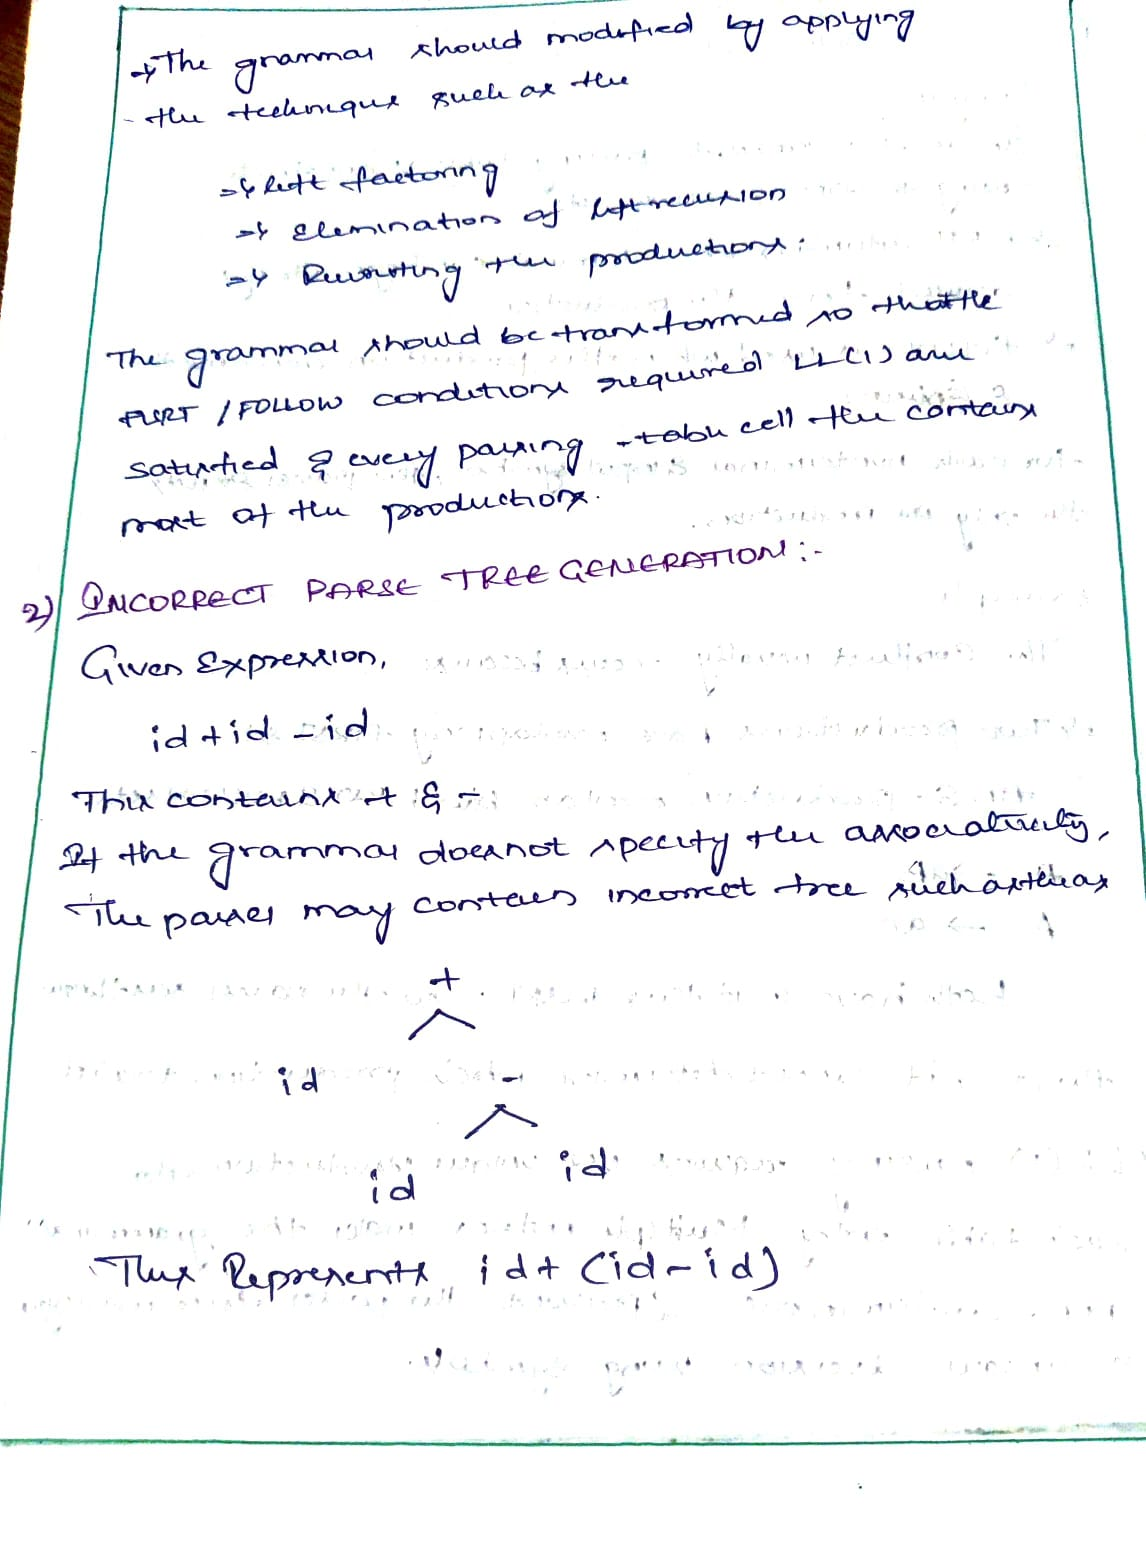 → The grammar should modified by applying
- the technique such as the
→ Left factoring
→ Elemination of left recursion
→ Rewriting the productions.
The grammar should be transformed so that the
FIRST / FOLLOW conditions required LL(1) are
satisfied & every parsing table cell the contains
most of the productions.
2) INCORRECT PARSE TREE GENERATION :-
Given Expression,
id + id - id
This contains + & -
If the grammar does not specify the associativity,
The parser may contain incorrect tree such as the as
+
id -
id id
This Represents id + (id - id)